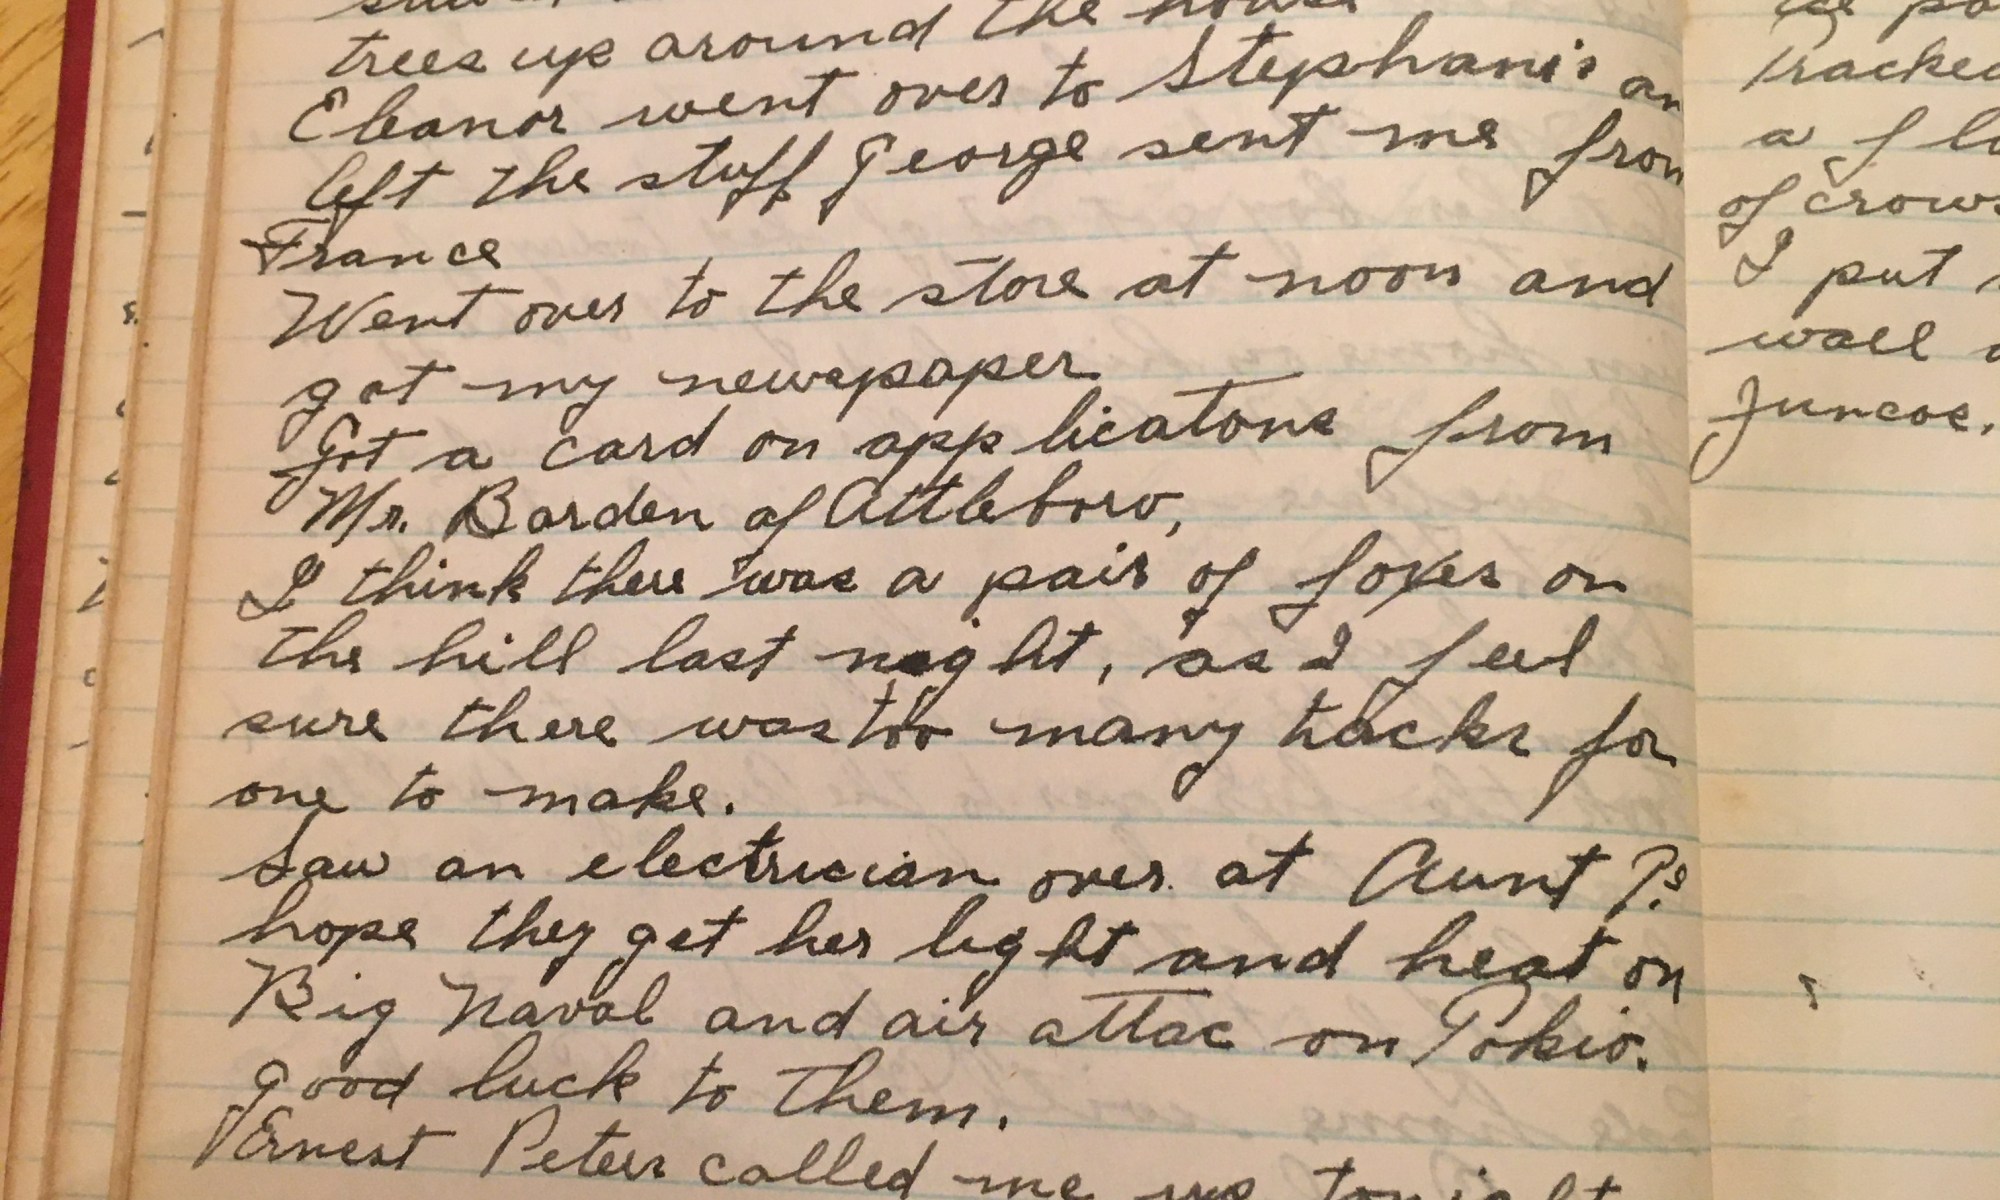 trees up around the house
Eleanor went over to Stephani's an
left the stuff George sent me from
France
Went over to the store at noon and
got my newspaper
Got a card on applicatons from
Mr. Barden of Attleboro,
I think there was a pair of foxes on
the hill last night, as I feel
sure there was too many tracks for
one to make.
Saw an electrician over at Aunt P.s
hope they get her light and heat on
Big Naval and air attac on Tokio.
good luck to them.
Ernest Peters called me up tonight
Tracked
a flo
of crows
I put
wall
Juncos.